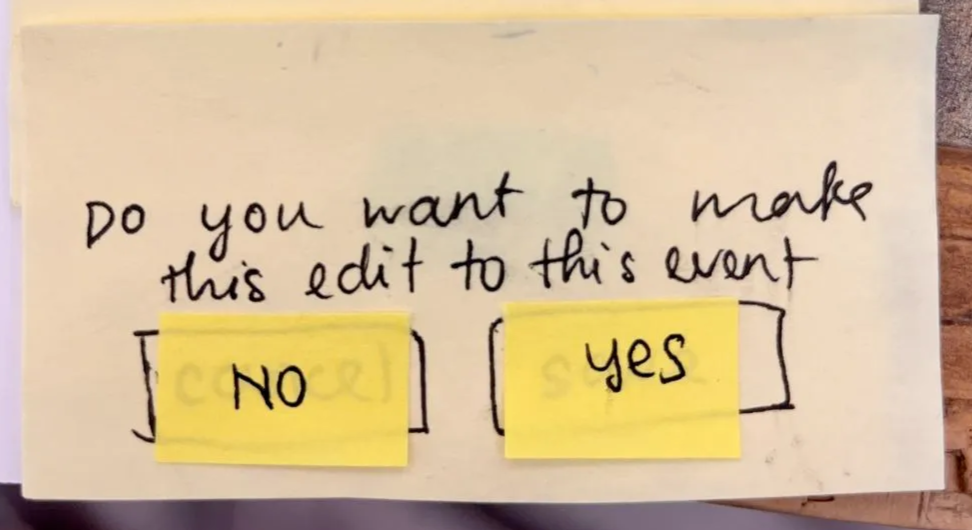 Do you want to make
this edit to this event
NO
yes